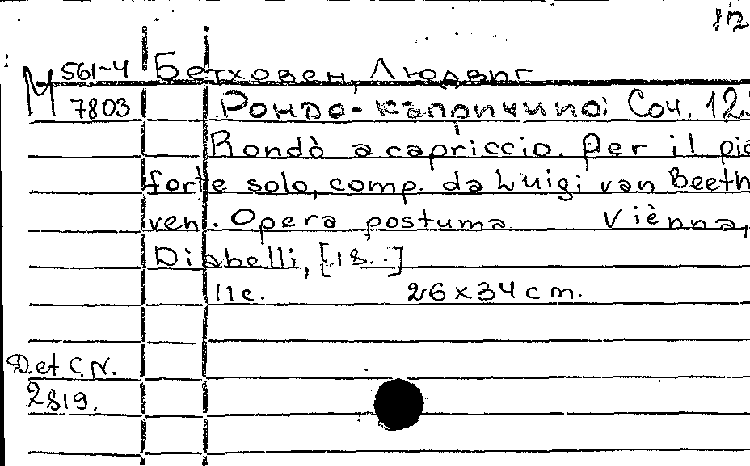 М 561-4 Бетховен, Людвиг
7803 Рондо-каприччио: Соч. 12
Rondò a capriccio. Per il pia
forte solo, comp. da Luigi van Beeth
ven. Opera postuma Viènna,
Diabelli, [18..]
11c. 26x34 cm.
Det C.N.
2819.